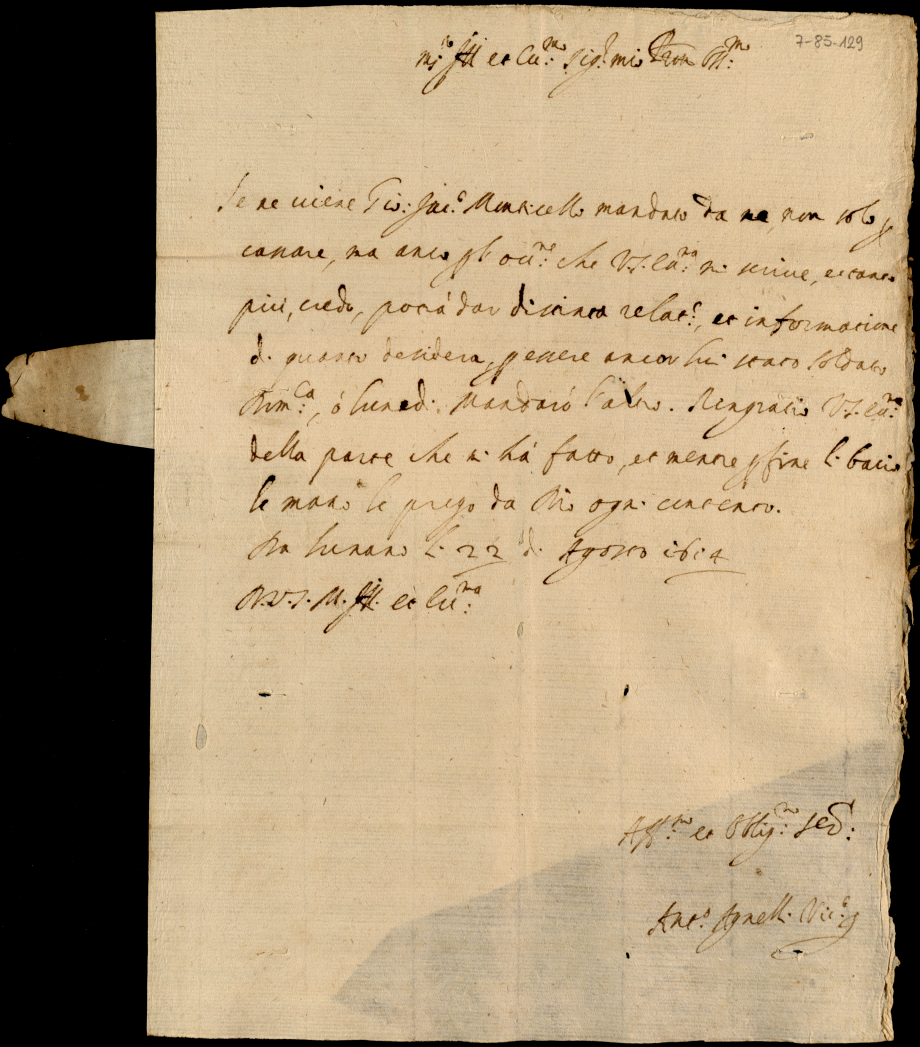 7-85-129
m.to Ill et Ecc.mo Sig.r mio Pron Oss.mo
Se ne viene Gio: Jac.o Monticello mandato da me, non solo p
, ma anco che V.S. Ecc.ma mi scrive, et tanto
più, credo, potrà dar distinta relat.e, et informatione
di quanto desidera, p essere ancor lui stato soldato
, ò lunedi Mandarò l'altro. Rengratio V.S. Ecc.ma
della parte che mi hà fatto, et mentre p fine li bacio
le mano le prego da Dio ogni contento.
Da li 22 di Agosto 1614
D.V.S. M. Ill. et Ecc.ma
Aff.mo et Oblig.mo Ser:
Ant.o Agnelli